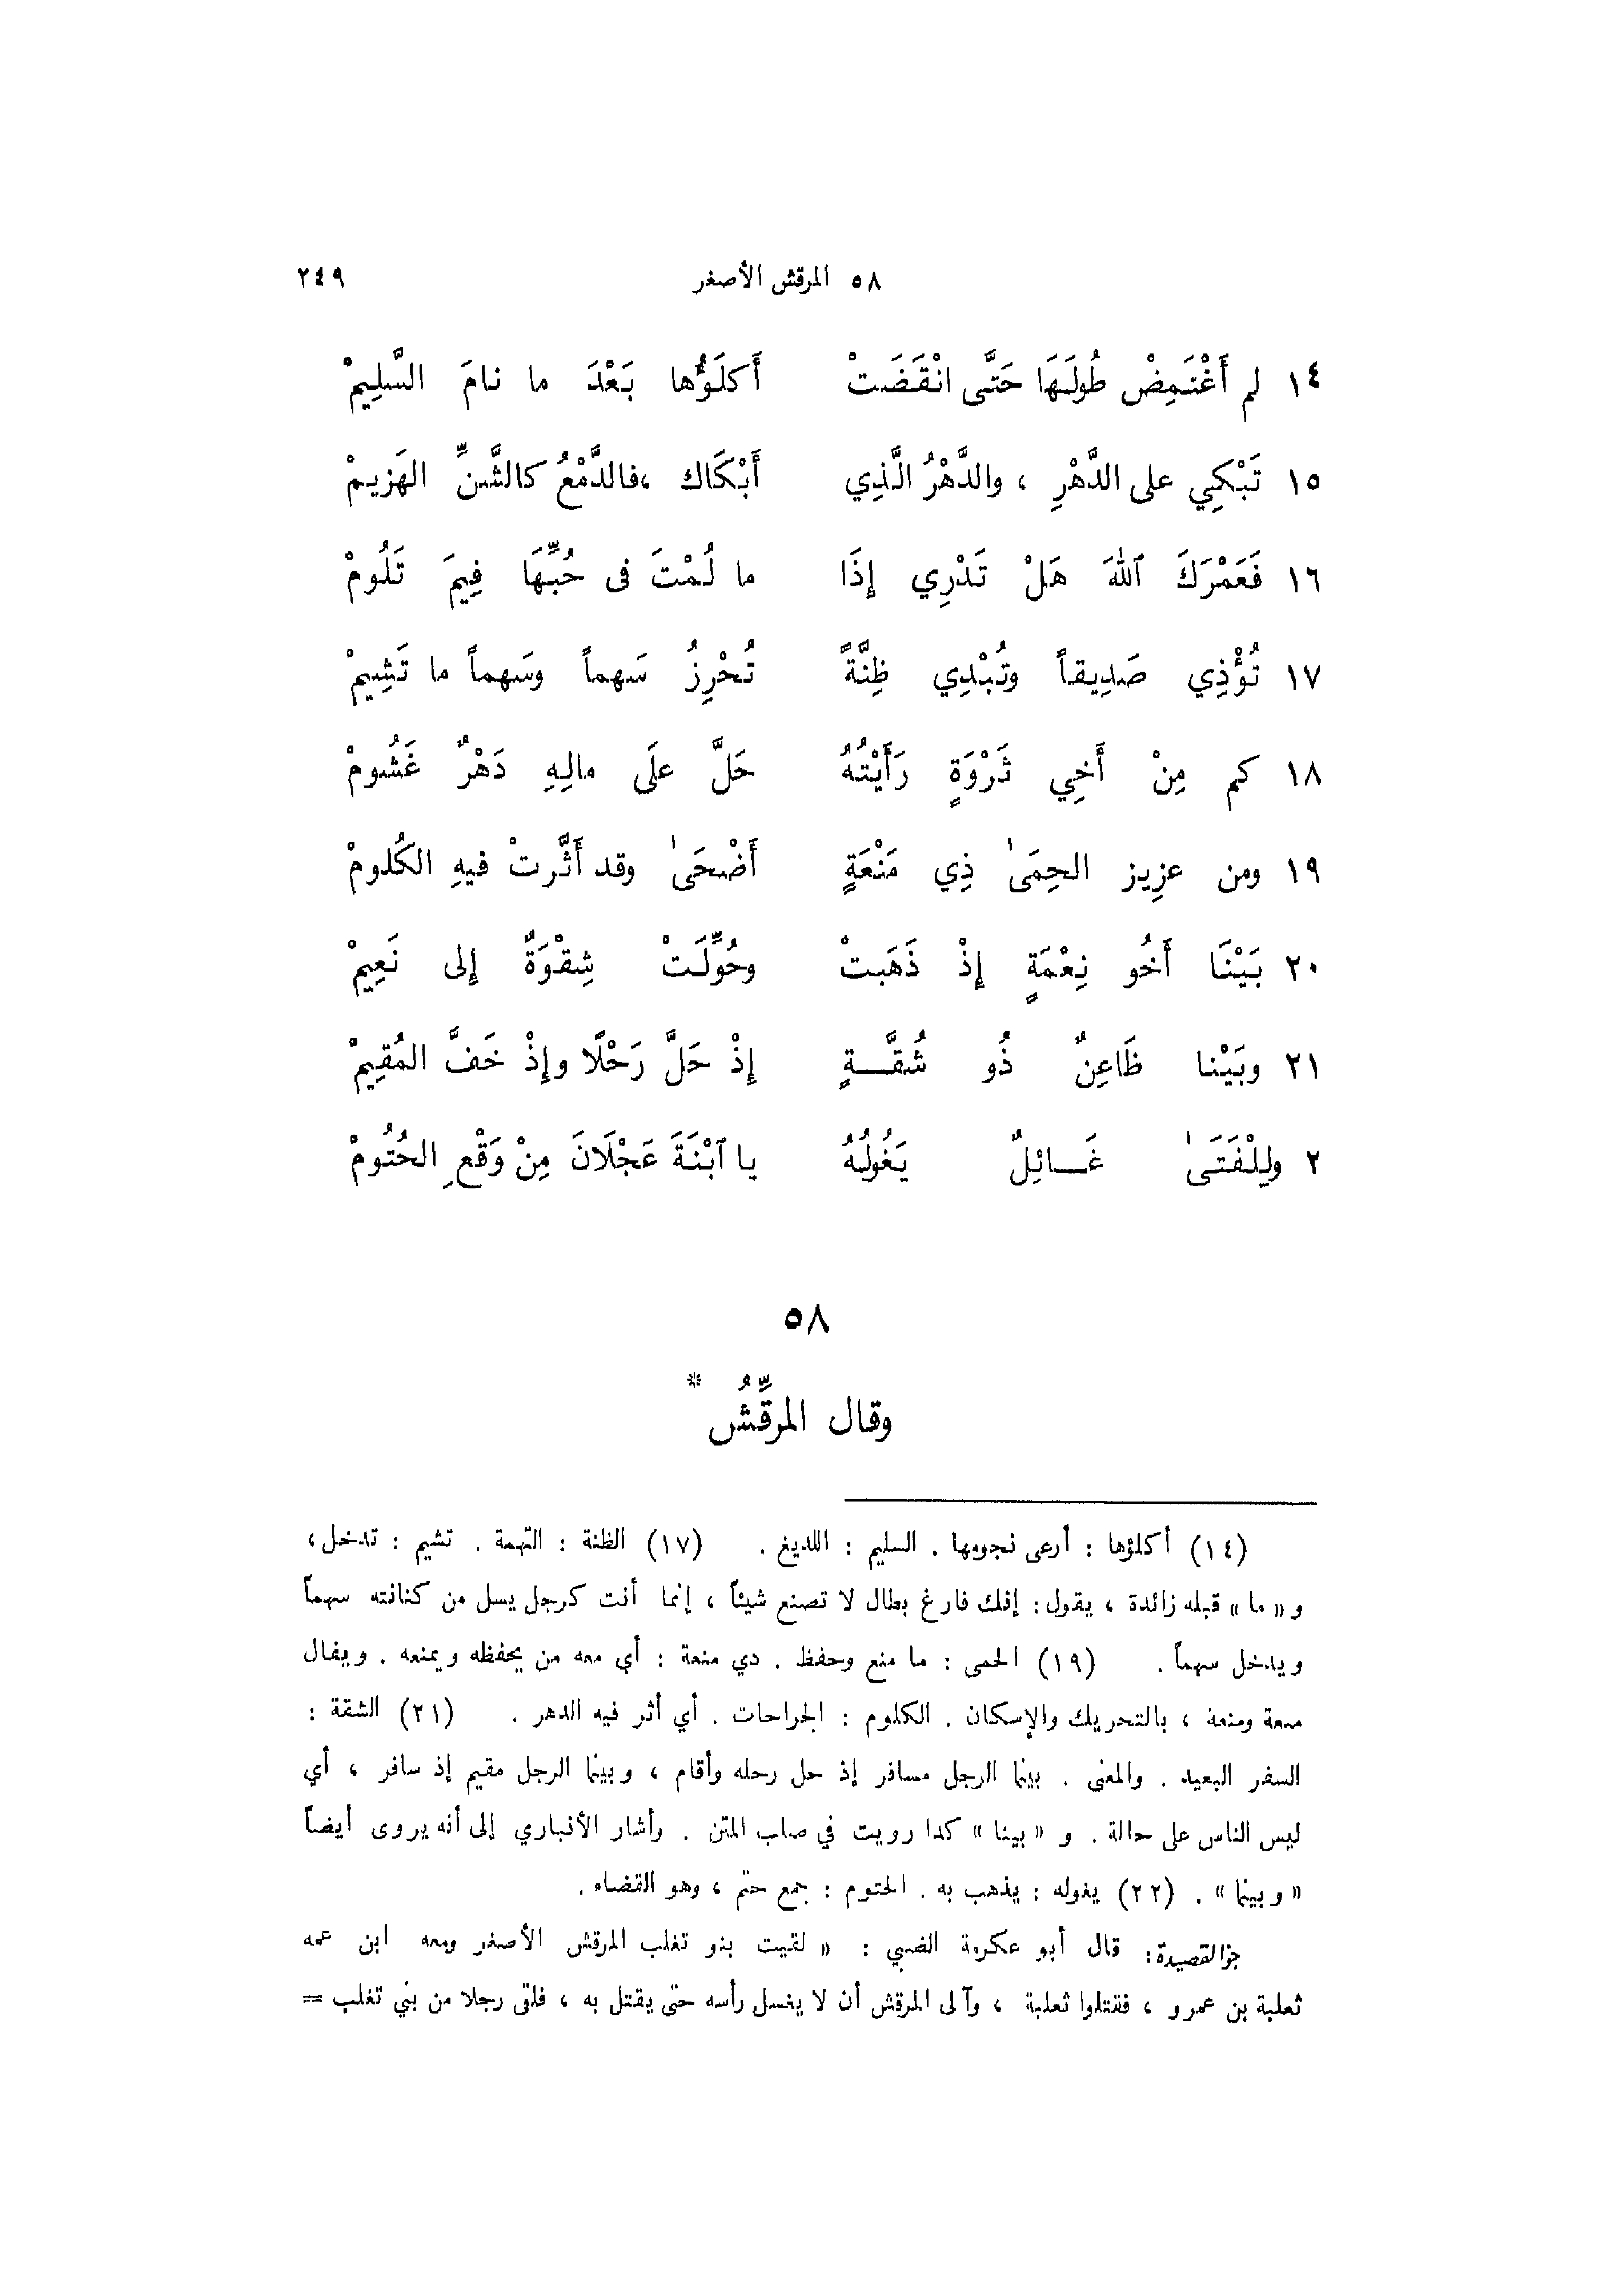 ٥٨ المرقش الأصغر ٢٤٩
١٤ لم أَغْتَمِضْ طُولَهَا حَتَّى انْقَضَتْ أَكلَؤُها بَعْدَ ما نامَ السَّلِيمْ
١٥ تَبْكِي على الدَّهْرِ ، والدَّهْرُ الَّذِي أَبْكَاك ،فالدَّمْعُ كالشَّنِّ الهَزِيمْ
١٦ فَعَمْرَكَ ٱللهَ هَلْ تَدْرِي إِذَا ما لُمْتَ فى حُبِّهَا فِيمَ تَلُومْ
١٧ تُؤْذِي صَدِيقاً وتُبْدِي ظِنَّةً تُحْرِزُ سَهماً وسَهماً ما تَشِيمْ
١٨ كم مِنْ أَخِي ثَرْوَةٍ رَأَيْتُهُ حَلَّ علَى مالِهِ دَهْرٌ غَشُومْ
١٩ ومن عزِيز الحِمَىٰ ذِي مَنْعَةٍ أَضْحَىٰ وقد أَثَّرتْ فيهِ الكُلومْ
٢٠ بَيْنَا أَخُو نِعْمَةٍ إِذْ ذَهَبتْ وحُوِّلَتْ شِقْوَةٌ إِلى نَعِيمْ
٢١ وبَيْنا ظَاعِنٌ ذُو شُقَّـــةٍ إِذْ حَلَّ رَحْلًا وإِذْ خَفَّ المُقِيمْ
٢ ولِلْفَتَىٰ غَـــائِلٌ يَغُولُهُ يا ٱبْنَةَ عَجْلَانَ مِنْ وَقْعِ الحُتُومْ
٥٨
وقال المرقِّشُ *
(١٤) أكلؤها : أرعى نجومها . السليم : اللديغ . (١٧) الظنة : التهمة . تشيم : تدخل ،
و « ما » قبله زائدة ، يقول : إفك فارغ بطال لا تصنع شيئاً ، إنما أنت كرجل يسل من كنانته سهماً
ويدخل سهماً . (١٩) الحمى : ما منع وحفظ . دي منعة : أي معه من يحفظه ويمنعه . ويقال
منعة ومنعة ، بالتحريك والإسكان . الكلوم : الجراحات . أي أثر فيه الدهر . (٢١) الشقة :
السفر البعيد . والمعنى . بينما الرجل مسافر إذ حل رحله وأقام ، وبينما الرجل مقيم إذ سافر ، أي
ليس الناس على حالة . و « بينا » كدا رويت في صلب المتن . وأشار الأنباري إلى أنه يروى أيضاً
« وبينما » . (٢٢) يغوله : يذهب به . الحتوم : جمع حتم ، وهو القضاء .
القصيدة : قال أبو عكرمة الضبي : « لقيت بنو تغلب المرقش الأصغر ومعه ابن عمه
ثعلبة بن عمرو ، فقتلوا ثعلبة ، وآلى المرقش أن لا يغسل رأسه حتى يقتل به ، فلقى رجلا من بني تغلب =